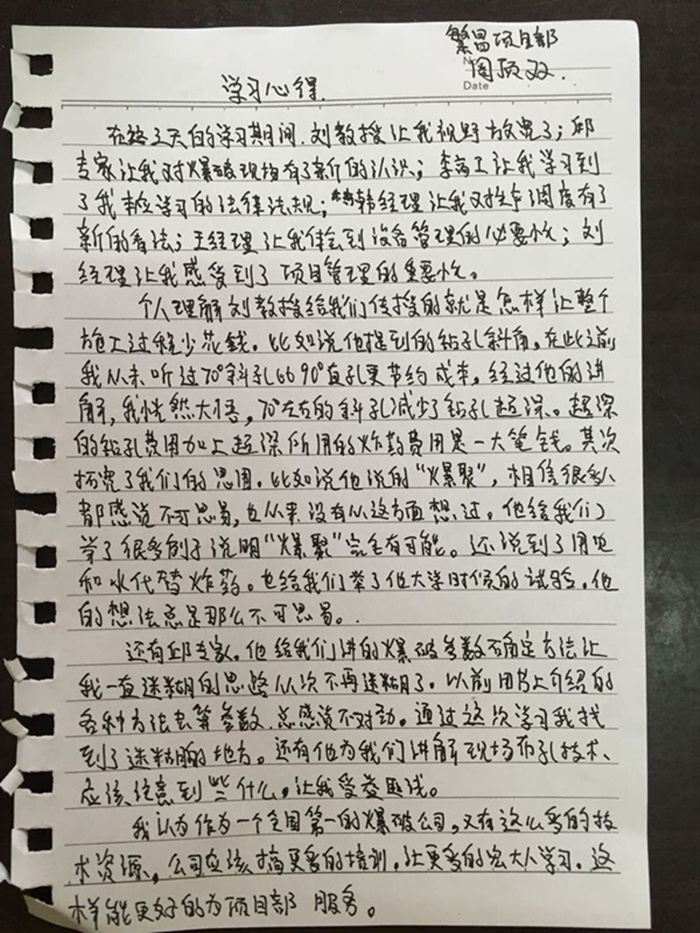 繁昌项目部
周顶双.
Date
学习心得.
在这3天的学习期间.刘教授让我视野放宽了;邱
专家让我对爆破现场有了新的认识;李高工让我学习到
了我本应学习的法律法规;韩经理让我对生产调度有了
新的看法;王经理让我体会到设备管理的必要性;刘
经理让我感受到了项目管理的重要性。
个人理解刘教授给我们传授的就是怎样让整个
施工过程少花钱.比如说他提到的钻孔斜角,在此之前
我从未听过70°斜孔比90°直孔更节约成本,经过他的讲
解,我恍然大悟,70°左右的斜孔减少了钻孔超深。超深
的钻孔费用加上超深所用的炸药费用是一大笔钱。其次
拓宽了我们的思围.比如说他说的“爆聚”,相信很多人
都感觉不可思易,也从来没有从这方面想过.他给我们
举了很多例子说明“爆聚”完全有可能。还说到了用电
和水代替炸药。也给我们举了他大学时候的试验.他
的想法总是那么不可思易。.
还有邱专家.他给我们讲的爆破参数确定方法让
我一直迷糊的思路从次不再迷糊了.以前用书上介绍的
各种方法去算参数.总感觉不对劲。通过这次学习我找
到了迷糊的地方。还有他为我们讲解现场布孔技术、
应该注意到些什么,让我受益匪浅。
我认为作为一个全国第一的爆破公司,又有这么多的技
术资源,公司应该搞更多的培训,让更多的宏大人学习.这
样能更好的为项目部服务。